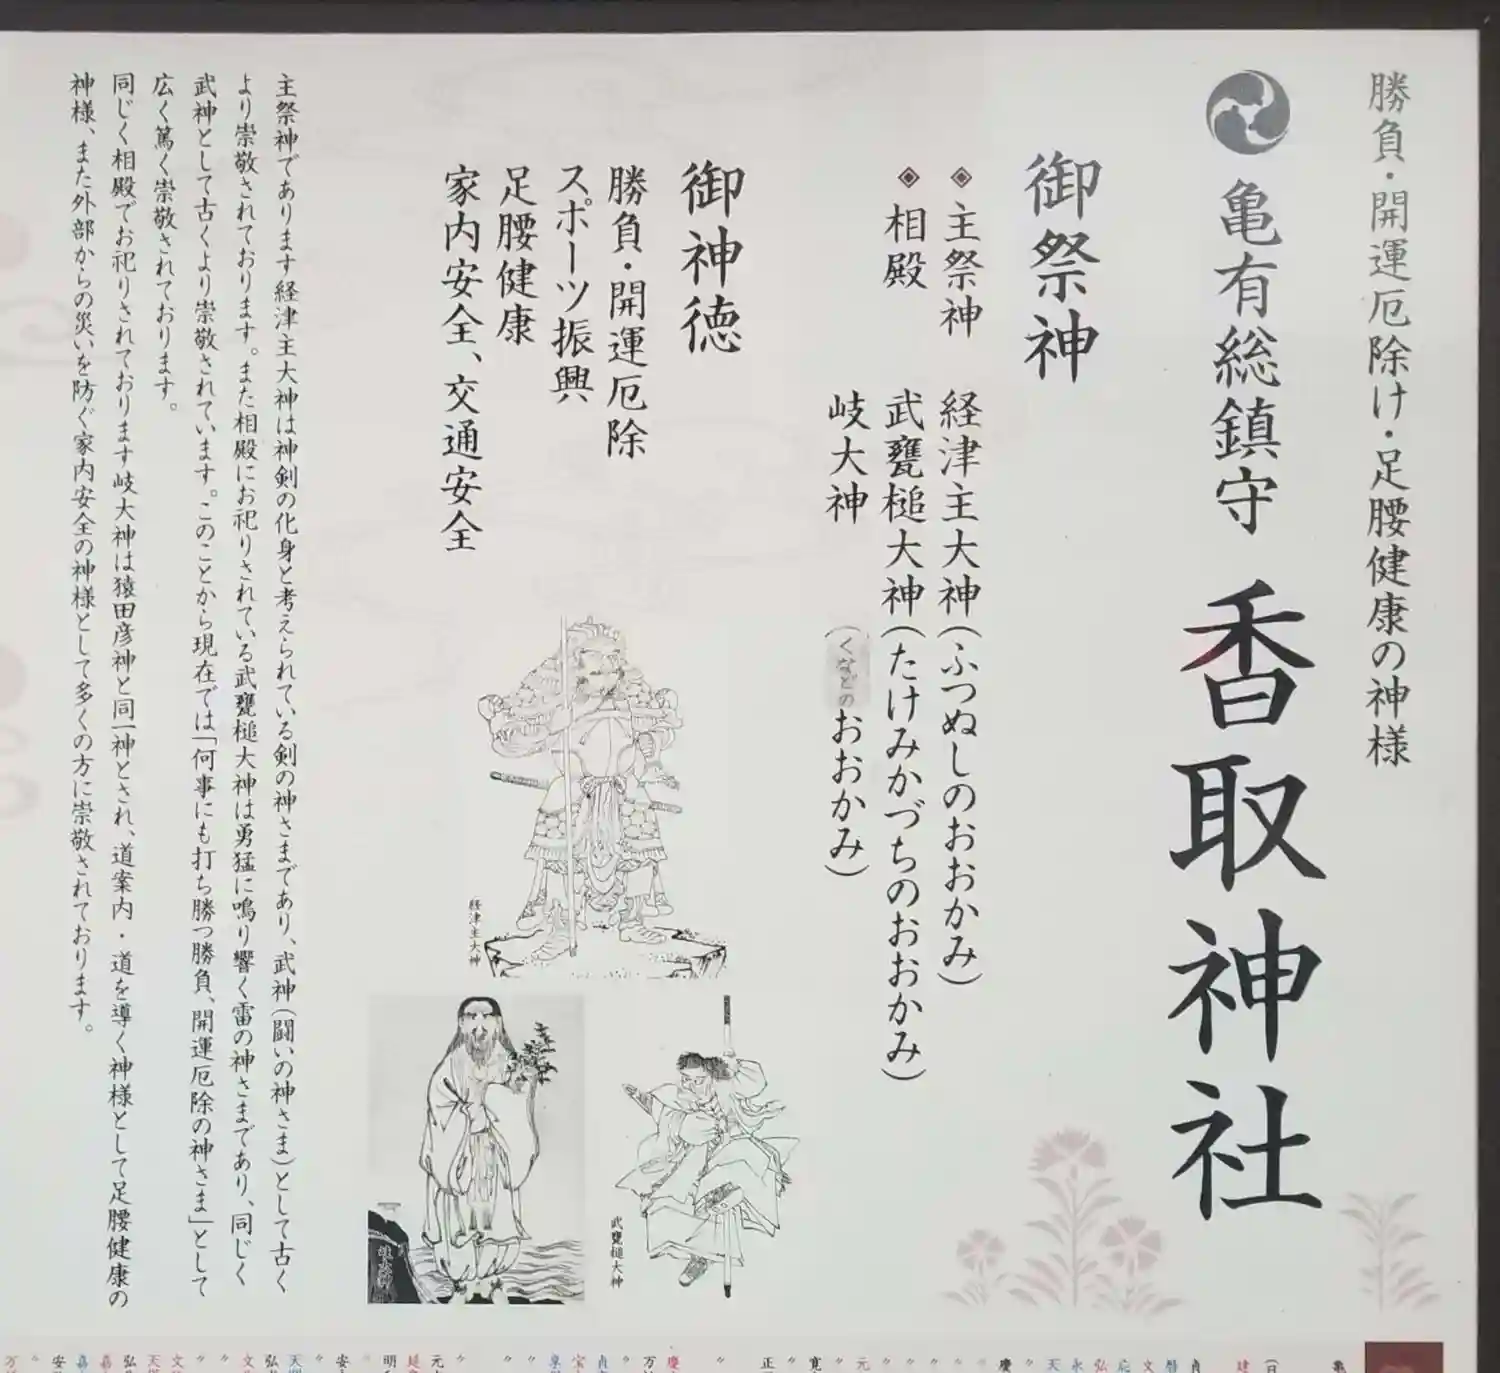 勝負・開運厄除け・足腰健康の神様
亀有総鎮守 香取神社
御祭神
主祭神 経津主大神(ふつぬしのおおかみ)
相殿 武甕槌大神(たけみかづちのおおかみ)
岐大神(くなどのおおかみ)
御神徳
勝負・開運厄除
スポーツ振興
足腰健康
家内安全、交通安全
経津主大神
武甕槌大神
主祭神であります経津主大神は神剣の化身と考えられている剣の神さまであり、武神(闘いの神さま)として古く
より崇敬されております。また相殿にお祀りされている武甕槌大神は勇猛に鳴り響く雷の神さまであり、同じく
武神として古くより崇敬されています。このことから現在では「何事にも打ち勝つ勝負、開運厄除の神さま」として
広く篤く崇敬されております。
同じく相殿でお祀りされております岐大神は猿田彦神と同一神とされ、道案内・道を導く神様として足腰健康の
神様、また外部からの災いを防ぐ家内安全の神様として多くの方に崇敬されております。